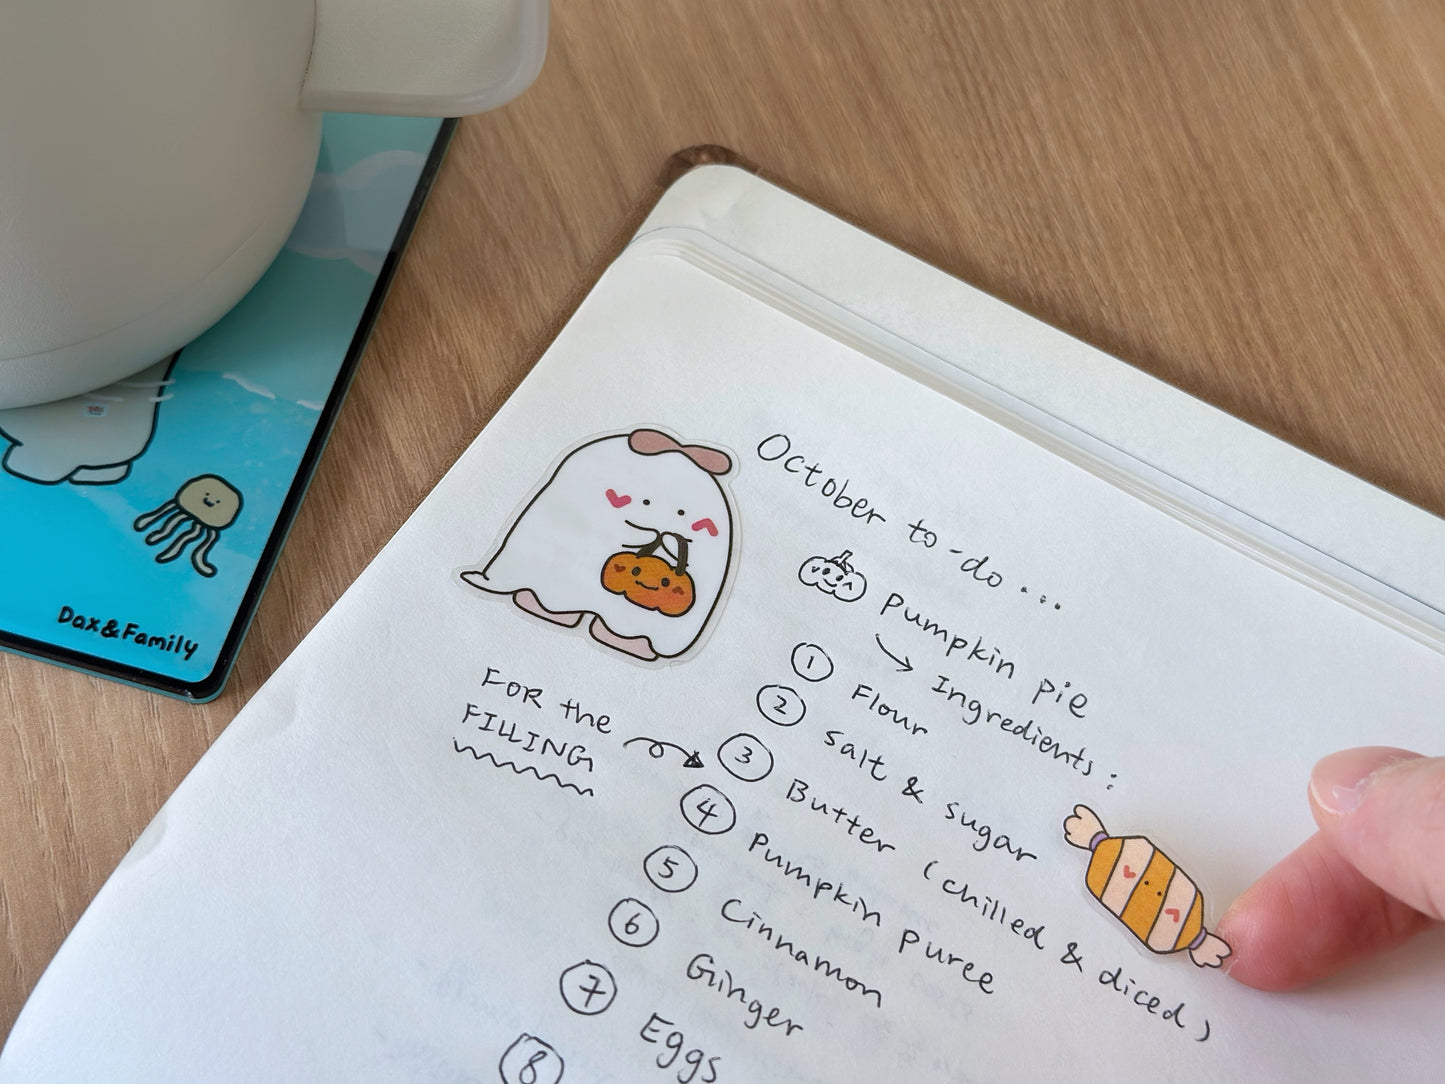 October to-do ...
Pumpkin pie
Ingredients:
1 Flour
2 Salt & sugar
3 Butter (chilled & diced)
FOR the
FILLING
4 Pumpkin puree
5 Cinnamon
6 Ginger
7 Eggs
8
Dax&Family